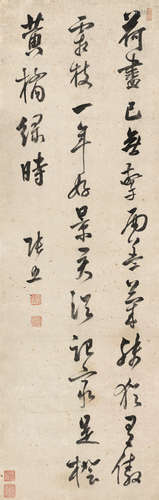 荷盡已無擎雨蓋菊殘猶有傲
霜枝一年好景君須記最是橙
黃橘綠時